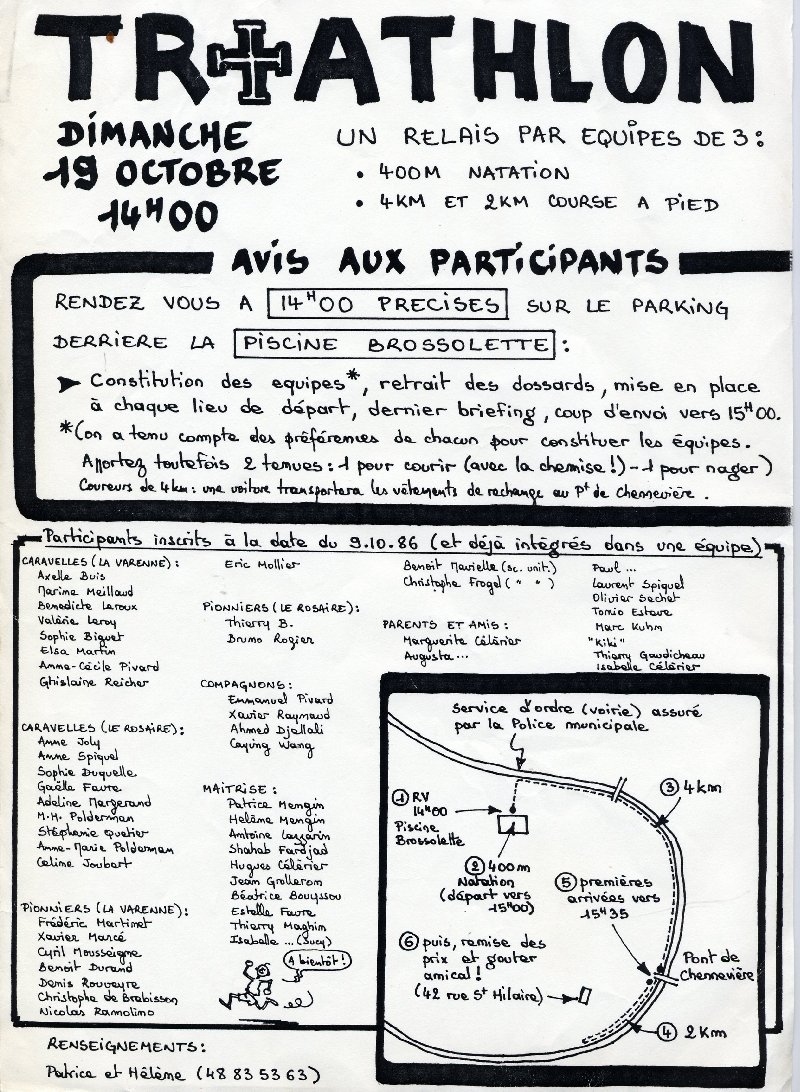 TRIATHLON
DIMANCHE
19 OCTOBRE
14H00
UN RELAIS PAR EQUIPES DE 3 :
• 400M NATATION
• 4KM ET 2KM COURSE A PIED
AVIS AUX PARTICIPANTS
RENDEZ VOUS A 14H00 PRECISES SUR LE PARKING
DERRIERE LA PISCINE BROSSOLETTE :
➤ Constitution des equipes*, retrait des dossards, mise en place
à chaque lieu de départ, dernier briefing, coup d'envoi vers 15H00.
*(on a tenu compte des préférences de chacun pour constituer les équipes.
Apportez toutefois 2 tenues : 1 pour courir (avec la chemise !) - 1 pour nager)
Coureurs de 4km : une voiture transportera les vêtements de rechange au Pt de Chennevière.
Participants inscrits à la date du 9.10.86 (et déjà intégrés dans une équipe)
CARAVELLES (LA VARENNE) :
Axelle Buis
Marine Meillaud
Benedicte Leroux
Valérie Leroy
Sophie Biguet
Elsa Martin
Anne-Cécile Pivard
Ghislaine Reicher
CARAVELLES (LE ROSAIRE) :
Anne Joly
Anne Spiquel
Sophie Duquelle
Gaëlle Favre
Adeline Margerand
M.H. Polderman
Stéphanie Quetier
Anne-Marie Polderman
Celine Joubert
PIONNIERS (LA VARENNE) :
Frédéric Martinet
Xavier Marcé
Cyril Mousseigne
Benoit Durand
Denis Rouveyre
Christophe de Brabisson
Nicolas Ramolino
Eric Mollier
PIONNIERS (LE ROSAIRE) :
Thierry B.
Bruno Rogier
COMPAGNONS :
Emmanuel Pivard
Xavier Raymaud
Ahmed Djellali
Cayung Wang
MAITRISE :
Patrice Mengin
Helène Mengin
Antoine Lazzarin
Shahab Fardjad
Hugues Célérier
Jean Grolleron
Béatrice Bouyssou
Estelle Favre
Thierry Maghim
Isabelle ... (Sucy)
A bientôt !
Benoit Marielle (sc. unit.)
Christophe Frogel ( " " )
PARENTS ET AMIS :
Marguerite Célérier
Augusta ...
Paul ...
Laurent Spiquel
Olivier Sechet
Tonio Esteve
Marc Kuhm
"Kiki"
Thierry Gaudicheau
Isabelle Célérier
Service d'ordre (voirie) assuré
par la Police municipale
① RV
14H00
Piscine
Brossolette
② 400m
Natation
(départ vers
15H00)
③ 4km
⑤ premières
arrivées vers
15H35
⑥ puis, remise des
prix et gouter
amical !
(42 rue St Hilaire)
Pont de
Chennevière
④ 2km
RENSEIGNEMENTS :
Patrice et Hélène (48 83 53 63)